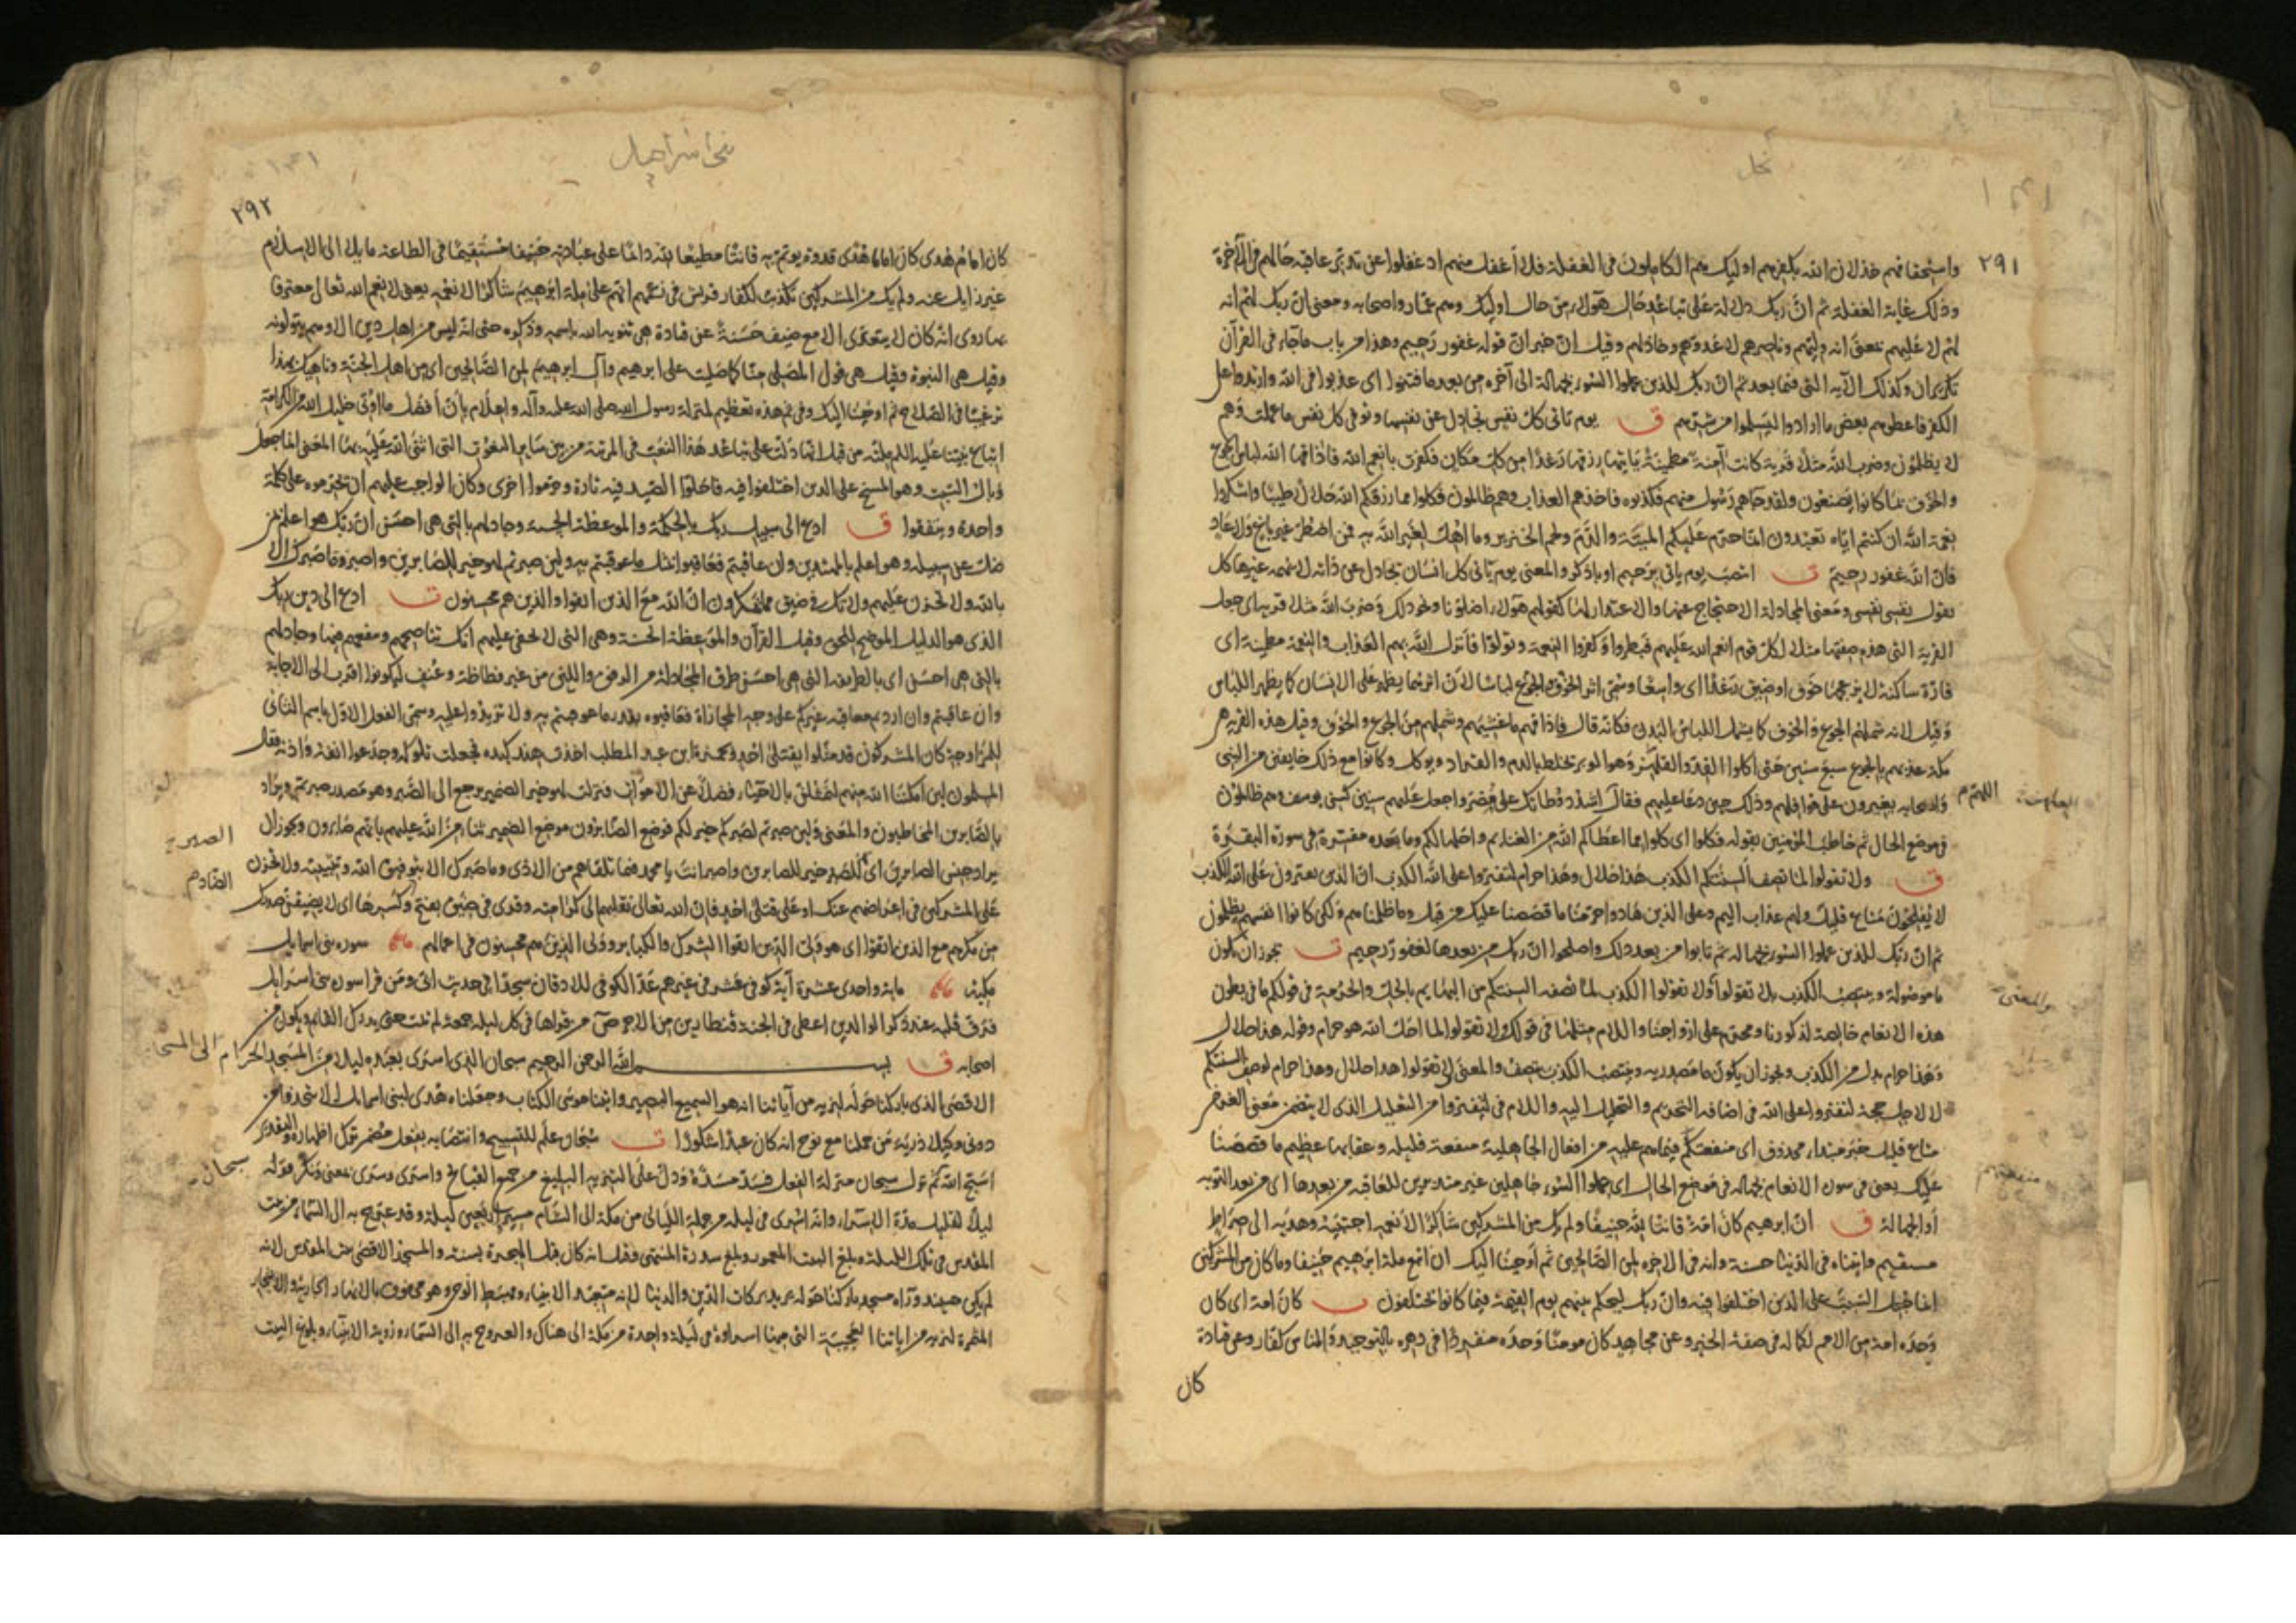 نحل
٢٩١
واستحقاقهم خذلان الله بكفرهم اوليك هم الكاملون في الغفلة فلا اغفل منهم اذ غفلوا عن تدبر عاقبة حالهم في الآخرة
وذلك غاية الغفلة ثم ان ربك دلالة على تباعد حال هؤلاء من حال اوليك وهم عمار واصحابه ومعنى ان ربك لهم انه
لهم لا عليهم بمعنى انه وليهم وناصرهم لا عدوهم وخاذلهم وقيل ان خبر ان قوله غفور رحيم وهذا من باب ما جاء في القرآن
تكرير ان وكذلك الآية التي فيما بعد ثم ان ربك للذين عملوا السوء بجهالة الى آخره من بعد ما فتنوا اى عذبوا في الله وارتدوا على
الكفر فاعطوهم بعض ما ارادوا ليسلموا من شرهم ق يوم تاتى كل نفس تجادل عن نفسها وتوفى كل نفس ما عملت وهم
لا يظلمون وضرب الله مثلا قرية كانت آمنة مطمئنة ياتيها رزقها رغدا من كل مكان فكفرت بانعم الله فاذاقها الله لباس الجوع
والخوف بما كانوا يصنعون ولقد جاهم رسول منهم فكذبوه فاخذهم العذاب وهم ظالمون فكلوا مما رزقكم الله حلالا طيبا واشكروا
نعمة الله ان كنتم اياه تعبدون انما حرم عليكم الميتة والدم ولحم الخنزير وما اهل لغير الله به فمن اضطر غير باغ ولا عاد
فان الله غفور رحيم ت انتصب يوم ياتى برحيم او باذكر والمعنى يوم ياتى كل انسان يجادل عن ذاته لا يهمه غيرها كل
يقول نفسى نفسى ومعنى المجادلة الاحتجاج عنها والاعتذار لها كقولهم هؤلاء اضلونا ونحو ذلك وضرب الله مثلا قرية اى جعل
القرية التي هذه صفتها مثلا لكل قوم انعم الله عليهم فبطروا وكفروا النعمة وتولوا فانزل الله بهم العذاب والنقمة مطمينة اى
قارة ساكنة لا يزعجها خوف او ضيق رغدا اى واسعا وسمى اثر الخوف والجوع لباسا لان اثرهما يظهر على الانسان كما يظهر اللباس
وقيل لانه شملهم الجوع والخوف كما يشمل اللباس البدن فكانه قال فاذاقهم ما غشيهم وشملهم من الجوع والخوف وقيل هذه القرية هي
مكة عذبهم بالجوع سبع سنين حتى اكلوا القد والعلهز وهو الوبر تختلط بالدم والقراد ويوكل وكانوا مع ذلك خايفين من النبى
واصحابه يغيرون على قوافلهم وذلك حين دعا عليهم فقال اشدد وطاتك على مضر واجعل عليهم سنين كسنى يوسف وهم ظالمون
اللهم
في موضع الحال ثم خاطب المؤمنين بقوله فكلوا اى كلوا مما اعطاكم الله من الغنايم واحلها لكم وما بعده مفسرة في سورة البقرة
ق ولا تقولوا لما تصف السنتكم الكذب هذا حلال وهذا حرام لتفتروا على الله الكذب ان الذين يفترون على الله الكذب
لا يفلحون متاع قليل ولهم عذاب اليم وعلى الذين هادوا حرمنا ما قصصنا عليك من قبل وما ظلمناهم ولكن كانوا انفسهم يظلمون
ثم ان ربك للذين عملوا السوء بجهالة ثم تابوا من بعد ذلك واصلحوا ان ربك من بعدها لغفور رحيم ت يجوز ان يكون
ما موصولة وينتصب الكذب بلا تقولوا ولا تقولوا الكذب لما تصفه السنتكم من البهايم بالحل والحرمة في قولكم ما في بطون
والمعنى
هذه الانعام خالصة لذكورنا ومحرم على ازواجنا واللام مثلها في قولك ولا تقولوا لما احل الله هو حرام وقوله هذا حلال
وهذا حرام بدل من الكذب ويجوز ان يكون ما مصدرية وينتصب الكذب بتصف والمعنى لا تقولوا هذا حلال وهذا حرام لوصف السنتكم
لا لاجل حجة لتفتروا على الله في اضافة التحريم والتحليل اليه واللام في لتفتروا من التعليل الذى لا يتضمن معنى الغرض
متاع قليل خبر مبتداء محذوف اى منفعتكم فيما هم عليه من افعال الجاهلية منفعة قليلة وعقابها عظيم ما قصصنا
منفعتهم
عليك يعنى في سورة الانعام بجهالة في موضع الحال اى عملوا السوء جاهلين غير متدبرين للعاقبة من بعدها اى من بعد التوبة
او الجهالة ق ان ابرهيم كان امة قانتا لله حنيفا ولم يك من المشركين شاكرا لانعمه اجتبيه وهديه الى صراط
مستقيم واتيناه في الدنيا حسنة وانه في الاخرة لمن الصالحين ثم اوحينا اليك ان اتبع ملة ابرهيم حنيفا وما كان من المشركين
انما جعل السبت على الذين اختلفوا فيه وان ربك ليحكم بينهم يوم القيمة فيما كانوا فيه يختلفون ت كان امة اى كان
وحده امة من الامم لكماله في صفة الخير وعن مجاهد كان مومنا وحده منفردا في دهره بالتوحيد والناس كفار وعن قتادة
كان
بنى اسراييل
٢٩٢
كان امام هدى كان اماما هدى قدوة يوتم به قانتا مطيعا لله دائما على عبادته حنيفا مستقيما في الطاعة مايلا الى الاسلام
غير زايل عنه ولم يك من المشركين تكذيب لكفار قريش في زعمهم انهم على ملة ابرهيم شاكرا لانعمه يعنى لانعم الله تعالى معترفا
بها روى انه كان لا يتغدى الا مع ضيف حسنة عن قتادة هي تنويه الله باسمه وذكره حتى انه ليس من اهل دين الا وهم يتولونه
وقيل هي النبوة وقيل هي قول المصلى منا كما صليت على ابرهيم وآل ابرهيم لمن الصالحين اى من اهل الجنة وناهيك بهذا
ترغيبا في الصلاح ثم اوحينا اليك وفي ثم هذه تعظيم لمنزلة رسول الله صلى الله عليه وآله واعلام بان افضل ما اوتى خليل الله من الكرامة
اتباع نبينا عليه السلم ملته من قبل انها دلت على تباعد هذا النعت في المرتبة من بين ساير النعوت التي اثنى الله عليه بها المعنى انما جعل
وبال السبت وهو المسخ على الذين اختلفوا فيه فاحلوا الصيد فيه تارة وحرموا اخرى وكان الواجب عليهم ان يحرموه على كلمة
واحدة ويتفقوا ق ادع الى سبيل ربك بالحكمة والموعظة الحسنة وجادلهم بالتي هي احسن ان ربك هو اعلم بمن
ضل عن سبيله وهو اعلم بالمهتدين وان عاقبتم فعاقبوا بمثل ما عوقبتم به ولئن صبرتم لهو خير للصابرين واصبر وما صبرك الا
بالله ولا تحزن عليهم ولا تك في ضيق مما يمكرون ان الله مع الذين اتقوا والذين هم محسنون ت ادع الى دين ربك
الذى هو الدليل الموضح للحق وقيل القرآن والموعظة الحسنة وهى التى لا تخفى عليهم انك تناصحهم وتنفعهم فيها وجادلهم
بالتى هي احسن اى بالطريقة التى هي احسن طرق المجادلة من الرفق واللين من غير فظاظة وعنف ليكونوا اقرب الى الاجابة
وان عاقبتم وان اردتم معاقبة غيركم على وجه المجازاة فعاقبوه بقدر ما عوقبتم به ولا تزيدوا عليه وسمى الفعل الاول باسم الثانى
للمزاوجة كان المشركون قد مثلوا بقتلى احد وبحمزة ابن عبد المطلب اخذت هند كبده فجعلت تلوكه وجدعوا انفه واذنه فقال
المسلمون لين امكننا الله منهم لنمثلن بالاحياء فضلا عن الاموات فنزلت لهو خير الضمير يرجع الى الصبر وهو مصدر صبرتم ويراد
بالصابرين المخاطبون والمعنى ولين صبرتم لصبركم خير لكم فوضع الصابرون موضع الضمير ثناء من الله عليهم بانهم صابرون ويجوز ان
الصبر
يراد جنس الصابرين اى للصبر خير للصابرين واصبر انت يا محمد فيما تلقاه من الاذى وما صبرك الا بتوفيق الله وتثبيته ولا تحزن
على المشركين في اعراضهم عنك او على قتلى احد فان الله تعالى نقلهم الى كرامته وقرى في ضيق بفتح وكسرها اى لا يضيقن صدرك
من مكرهم مع الذين اتقوا اى هو ولى الذين اتقوا الشرك والكباير وولى الذين هم محسنون في اعمالهم سورة بنى اسرايل
مكية ماية واحدى عشرة آية كوفى عشر في غيرهم عد الكوفى للاذقان سجدا في حديث ابى ومن قرا سورة بنى اسرايل
فرق قلبه عند ذكر الوالدين اعطى في الجنة قنطارين من الاجر ص من قراها في كل ليلة جمعة لم يمت حتى يدرك القايم ويكون من
اصحابه ق بسم الله الرحمن الرحيم سبحان الذى اسرى بعبده ليلا من المسجد الحرام الى المسجد
الاقصى الذى باركنا حوله لنريه من آياتنا انه هو السميع البصير واتينا موسى الكتاب وجعلناه هدى لبنى اسرايل الا تتخذوا من
دونى وكيلا ذرية من حملنا مع نوح انه كان عبدا شكورا ت سبحان علم للتسبيح وانتصابه بفعل مضمر ترك اظهاره والتقدير
سبحان
اسبح الله ثم نزل سبحان منزلة الفعل فسد مسده ودل على التنزيه البليغ من جميع القبايح واسرى وسرى بمعنى ونكر قوله
ليلا لتقليل مدة الاسراء وانه اسرى في ليلة من جملة الليالى من مكة الى الشام مسيرة اربعين ليلة وقد عرج به الى السماء من بيت
المقدس في تلك الليلة وبلغ البيت المعمور وبلغ سدرة المنتهى وقيل انه كان قبل الهجرة بسنة والمسجد الاقصى بيت المقدس لانه
لم يكن حينيذ وراه مسجد باركنا حوله يريد بركات الدين والدنيا لانه متعبد الانبياء ومهبط الوحى وهو محفوف بالانهار الجارية والاشجار
المثمرة لنريه من اياتنا العجيبة التى منها اسراؤه في ليلة واحدة من مكة الى هناك والعروج به الى السماء ورؤية الانبياء وبلوغ البيت